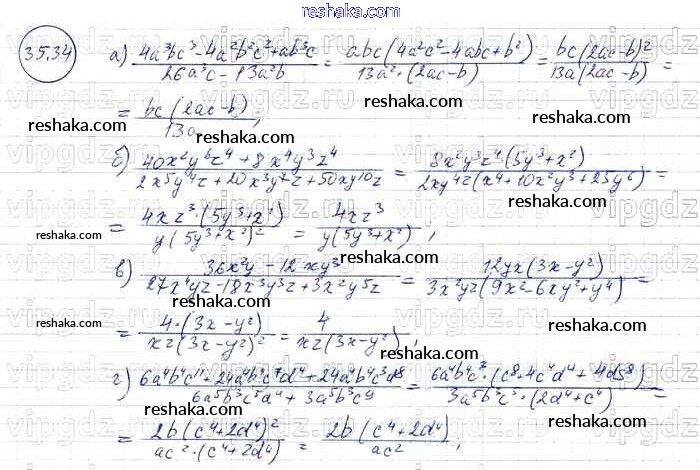 reshaka.com
35.34 а) (4a³bc³ - 4a²b²c² + ab³c)/(26a³c - 13a²b) = abc(4a²c² - 4abc + b²)/(13a²·(2ac - b)) = bc(2ac - b)²/(13a(2ac - b)) =
= bc(2ac - b)/13a,
б) (40x²y⁶z⁴ + 8x⁴y³z⁴)/(2x⁵y⁴z + 20x³y⁷z + 50xy¹⁰z) = 8x²y³z⁴·(5y³ + x²)/(2xy⁴z·(x⁴ + 10x²y³ + 25y⁶)) =
= 4xz³·(5y³ + x²)/(y(5y³ + x²)²) = 4xz³/(y(5y³ + x²)),
в) (36x²y - 12xy³)/(27x⁴yz - 18x³y³z + 3x²y⁵z) = 12yx(3x - y²)/(3x²yz(9x² - 6xy² + y⁴)) =
= 4·(3x - y²)/(xz(3x - y²)²) = 4/(xz(3x - y²)),
г) (6a⁴b⁴c¹¹ + 24a⁴b⁴c⁷d⁴ + 24a⁴b⁴c³d⁸)/(6a⁵b³c⁵d⁴ + 3a⁵b³c⁹) = 6a⁴b⁴c³·(c⁸ + 4c⁴d⁴ + 4d⁸)/(3a⁵b³c⁵·(2d⁴ + c⁴)) =
= 2b(c⁴ + 2d⁴)²/(ac²·(c⁴ + 2d⁴)) = 2b(c⁴ + 2d⁴)/ac²,